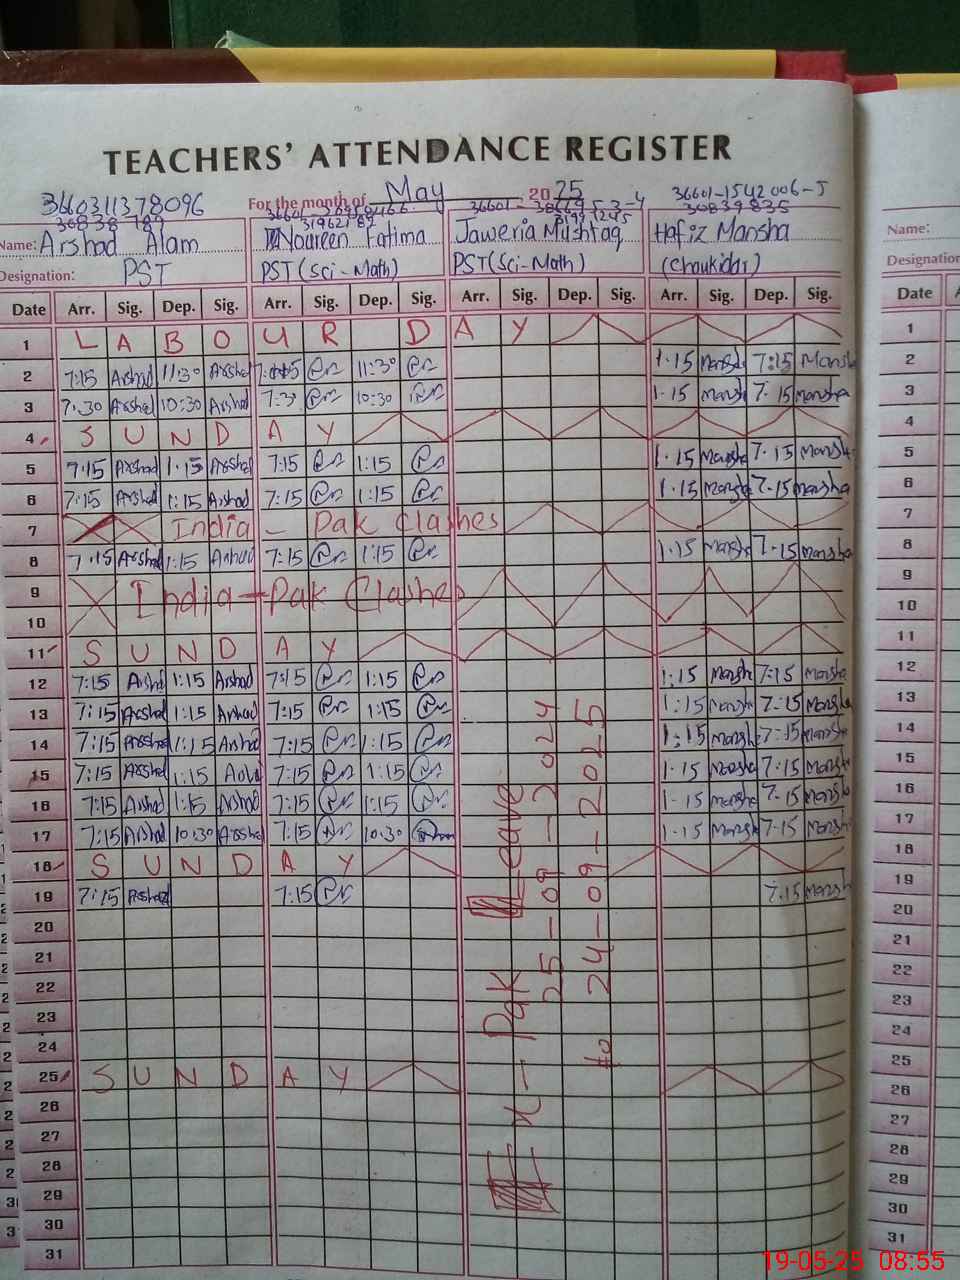 TEACHERS' ATTENDANCE REGISTER
For the month of May 2025
3660311378096 36601-1542006-5
30838789 31962189 30839835
Name: Arshad Alam Noureen Fatima Jaweria Mushtaq Hafiz Mansha Name:
Designation: PST PST (Sci-Math) PST (Sci-Math) (Chaukidar) Designation
Date Arr. Sig. Dep. Sig. Arr. Sig. Dep. Sig. Arr. Sig. Dep. Sig. Arr. Sig. Dep. Sig. Date
1 LABOUR DAY 1
2 7:15 Arshad 11:30 Arshad 11:30 1.15 Mansha 7:15 Mansha 2
3 7.30 Arshad 10:30 Arshad 7:30 10:30 1.15 Mansha 7.15 Mansha 3
4 SUNDAY 4
5 7:15 Arshad 1.15 Arshad 7:15 1:15 1.15 Mansha 7.15 Mansha 5
6 7:15 Arshad 1:15 Arshad 7:15 1:15 1.15 Mansha 7.15 Mansha 6
7 India - Pak Clashes 7
8 7.15 Arshad 1:15 Arshad 7:15 1:15 1.15 Mansha 7.15 Mansha 8
9 India - Pak Clashes 9
10 10
11 SUNDAY 11
12 7:15 Arshad 1:15 Arshad 7:15 1:15 1:15 Mansha 7:15 Mansha 12
13 7:15 Arshad 1:15 Arshad 7:15 1:15 1:15 Mansha 7:15 Mansha 13
14 7:15 Arshad 1:15 Arshad 7:15 1:15 1:15 Mansha 7:15 Mansha 14
15 7:15 Arshad 1:15 7:15 1:15 1.15 Mansha 7:15 Mansha 15
16 7:15 Arshad 1:15 Arshad 7:15 1:15 1.15 Mansha 7.15 Mansha 16
17 7:15 Arshad 10:30 Arshad 7:15 10:30 1.15 Mansha 7.15 Mansha 17
18 SUNDAY 18
19 7:15 Arshad 7:15 7.15 Mansha 19
20 20
21 21
22 22
23 23
24 24
25 SUNDAY 25
26 26
27 27
28 28
29 29
30 30
31 31
x - Pak Leave
25-09-2024
to 24-09-2025
19-05-25 08:55